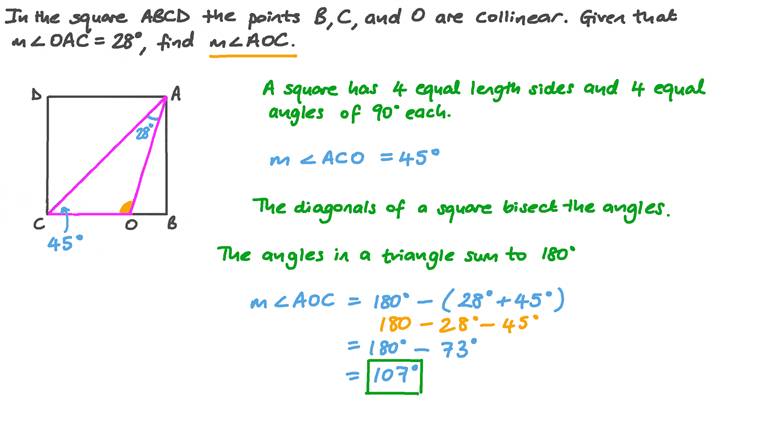 In the square ABCD the points B, C, and O are collinear. Given that
m∠OAC = 28°, find m∠AOC.
D A
28°
C O B
45°
A square has 4 equal length sides and 4 equal
angles of 90° each.
m∠ACO = 45°
The diagonals of a square bisect the angles.
The angles in a triangle sum to 180°
m∠AOC = 180° - (28° + 45°)
180 - 28° - 45°
= 180° - 73°
= 107°